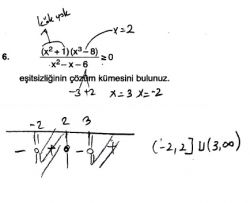 kök yok
x=2
6. (x²+1)(x³-8) / x²-x-6 ≥0
eşitsizliğinin çözüm kümesini bulunuz.
-3 +2 x=3 x=-2
-2 2 3
- + - +
(-2,2] ∪ (3,∞)